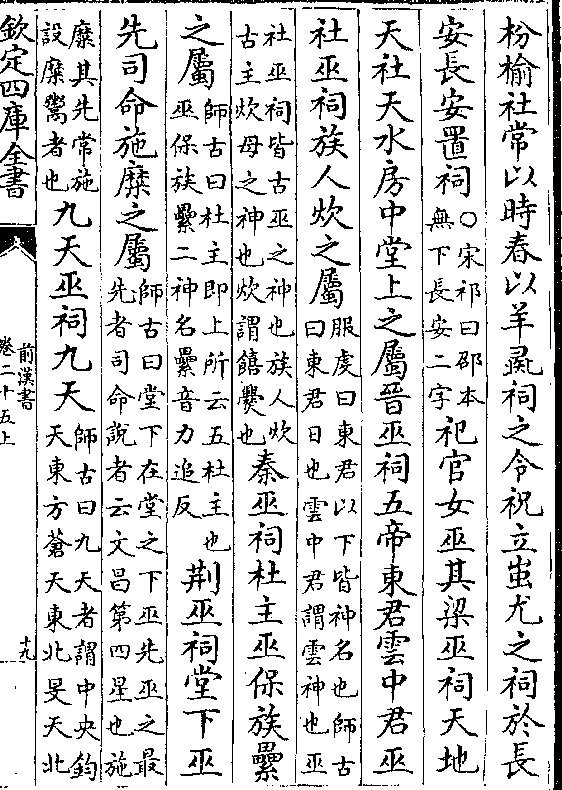 枌榆社常以時春以羊彘祠之令祝立蚩尤之祠於長
安長安置祠○宋祁曰邵本無下長安二字祀官女巫其梁巫祠天地
天社天水房中堂上之屬晉巫祠五帝東君雲中君巫
社巫祠族人炊之屬服虔曰東君以下皆神名也師古曰東君日也雲中君謂雲神也巫
社巫祠皆古巫之神也族人炊古主炊母之神也炊謂饎爨也秦巫祠杜主巫保族纍
之屬師古曰杜主即上所云五杜主也巫保族纍二神名纍音力追反荆巫祠堂下巫
先司命施糜之屬師古曰堂下在堂之下巫先巫之最先者司命說者云文昌第四星也施
糜其先常施設糜鬻者也九天巫祠九天師古曰九天者謂中央鈞天東方蒼天東北旻天北
欽定四庫全書
前漢書
卷二十五上
十九